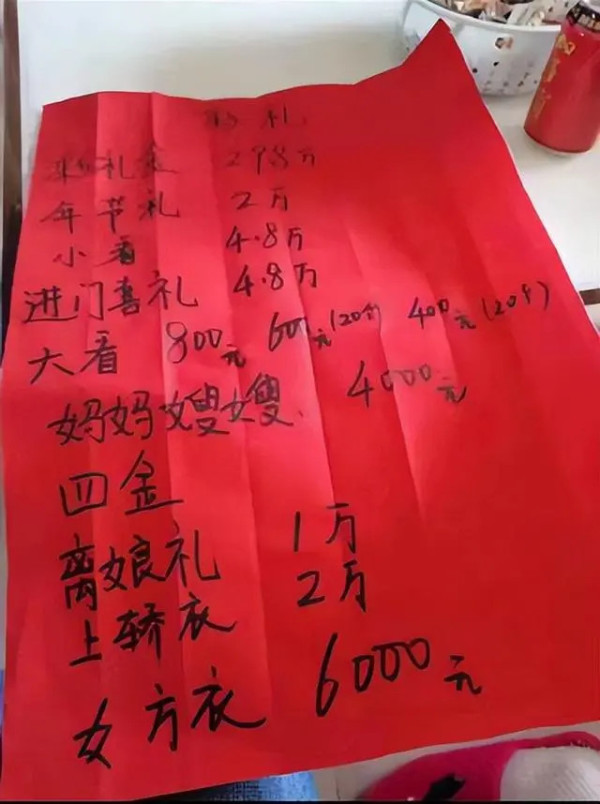 彩礼
彩礼金 298万
年节礼 2万
小看 4.8万
进门喜礼 4.8万
大看 800元 600元(20个) 400元(20个)
妈妈嫂嫂 4000元
四金
离娘礼 1万
上轿衣 2万
女方衣 6000元